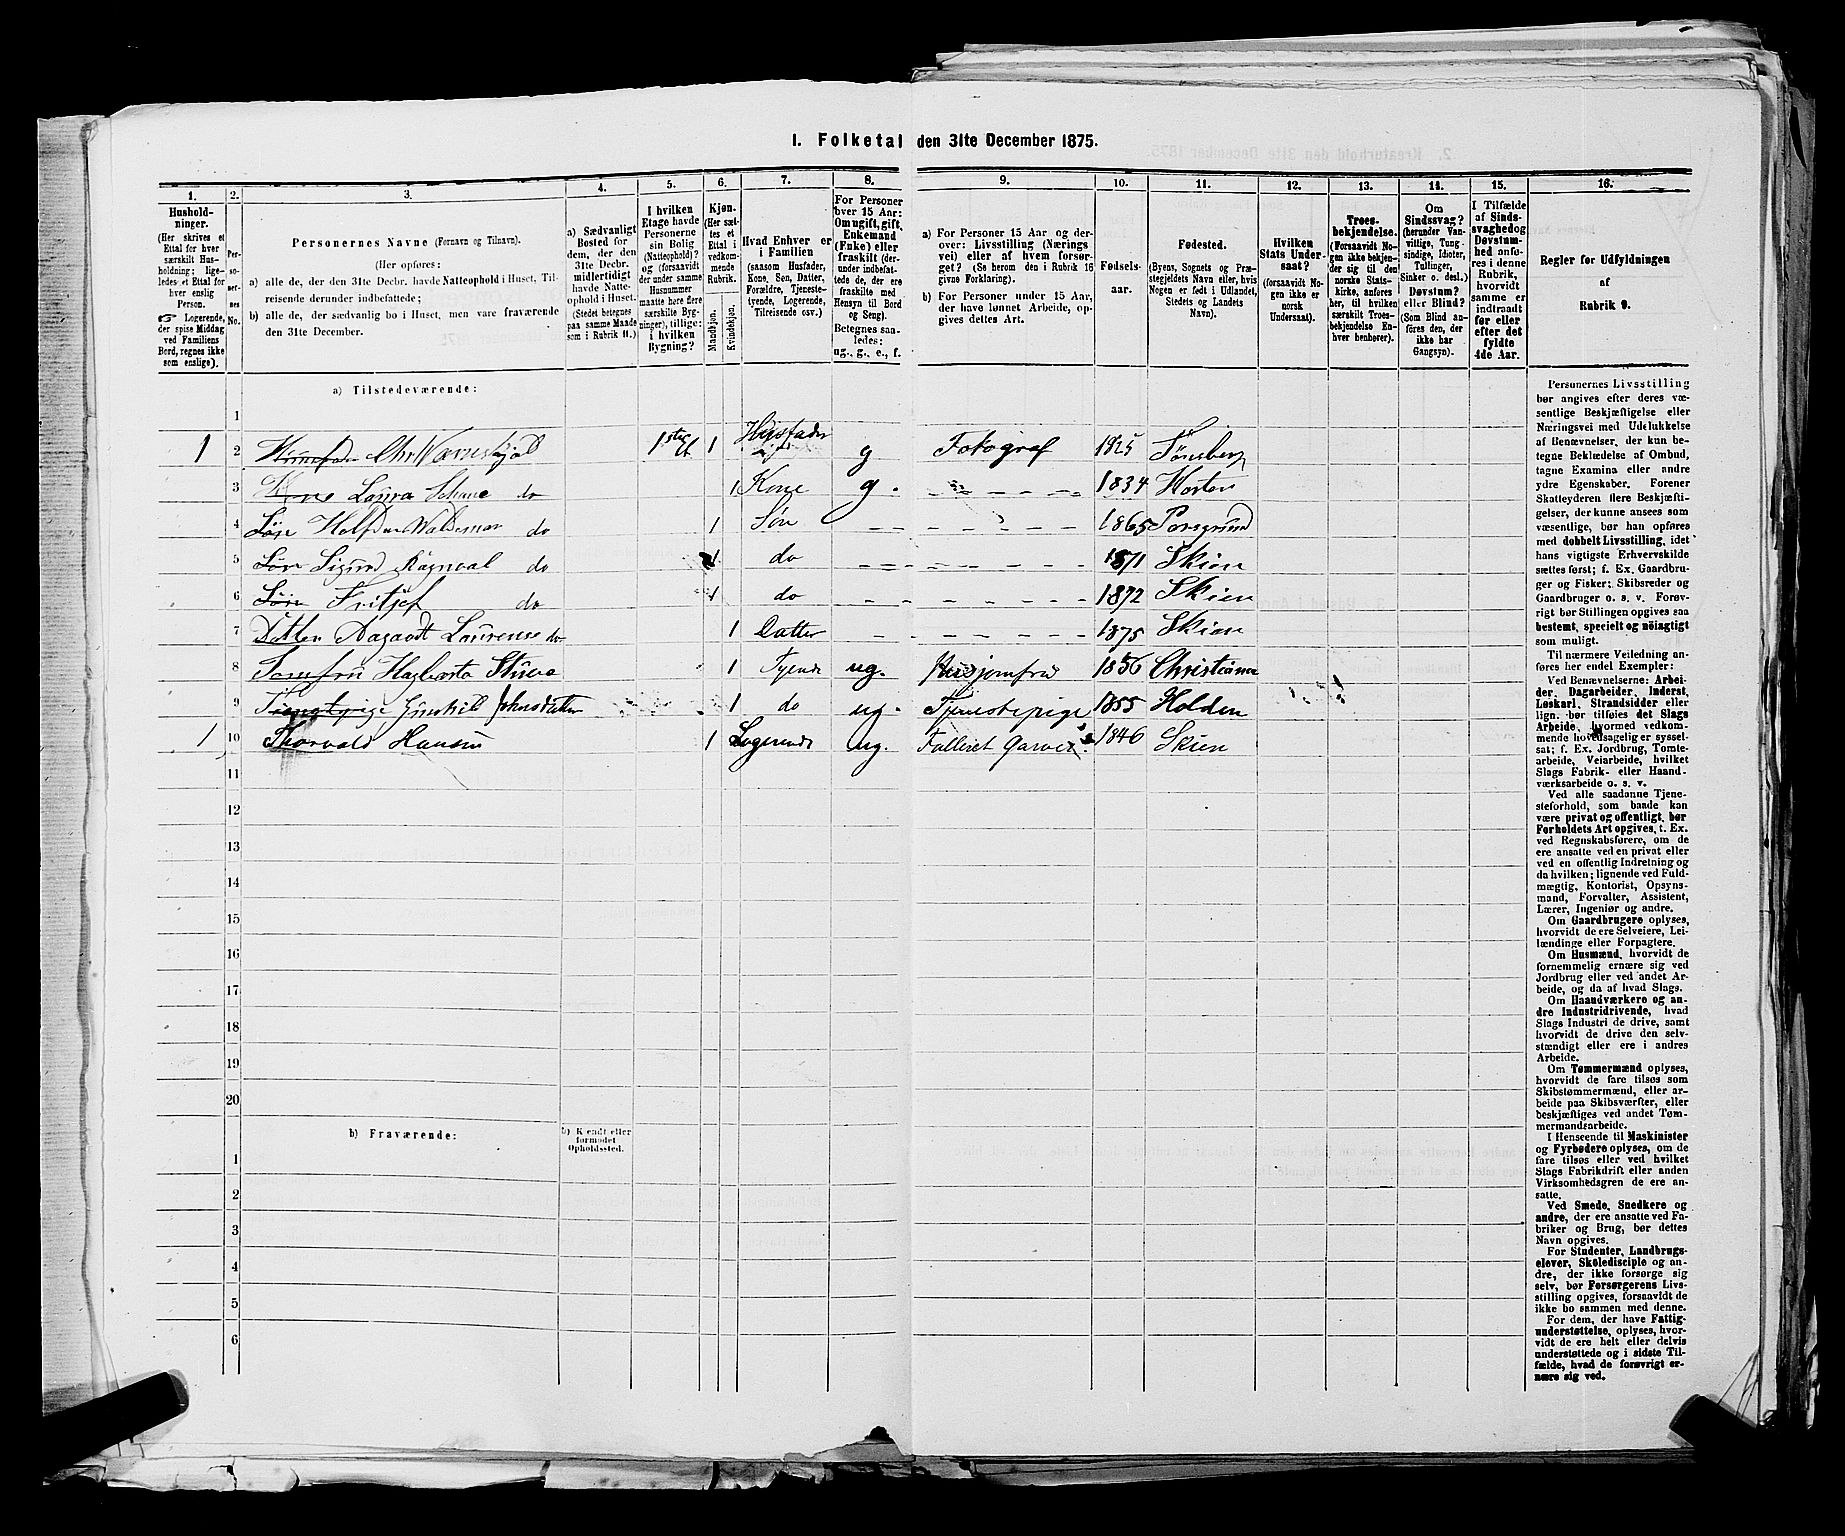 1. Folketal den 31te December 1875.
1. 2. 3. 4. 5. 6. 7. 8. 9. 10. 11. 12. 13. 14. 15. 16.
Husholdninger.
(Her skrives et Ettal for hver særskilt Husholdning; ligeledes et Ettal for hver enslig Person.
☞ Logerende, der spise Middag ved Familiens Bord, regnes ikke som enslige).
Personernes No.
Personernes Navne (Fornavn og Tilnavn).
(Her opføres:
a) alle de, der den 31te Decbr. havde Natteophold i Huset, Tilreisende derunder indbefattede;
b) alle de, der sædvanlig bo i Huset, men vare fraværende den 31te December.
a) Sædvanligt Bosted for dem, der den 31te Decbr. midlertidigt havde Natteophold i Huset. (Stedet betegnes paa samme Maade som i Rubrik 11.)
I hvilken Etage havde Personerne sin Bolig (Natteophold)? og (forsaavidt der under samme Husnummer maatte høre flere særskilte Bygninger), tillige: i hvilken Bygning?
Kjøn. (Her sættes et Ettal i vedkommende Rubrik.
Mandkjøn.
Kvindekjøn.
Hvad Enhver er i Familien
(saasom Husfader, Kone, Søn, Datter, Forældre, Tjenestetyende, Logerende, Tilreisende osv.)
For Personer over 15 Aar: Om ugift, gift, Enkemand (Enke) eller fraskilt (derunder indbefattede, de, der ere fraskilte med Hensyn til Bord og Seng).
Betegnes saaledes: ug., g., e., f.
a) For Personer 15 Aar og derover: Livsstilling (Næringsvei) eller af hvem forsørget? (Se herom den i Rubrik 16 givne Forklaring).
b) For Personer under 15 Aar, der have lønnet Arbeide, opgives dettes Art.
Fødselsaar.
Fødested.
(Byens, Sognets og Præstegjeldets Navn eller, hvis Nogen er født i Udlandet, Stedets og Landets Navn).
Hvilken Stats Undersaat?
(forsaavidt Nogen ikke er norsk Undersaat).
Troesbekjendelse.
(Forsaavidt Nogen ikke bekjender sig til den norske Statskirke, anføres her, til hvilken særskilt Troesbekjendelse Enhver henhører).
Om Sindssvag? (herunder Vanvittige, Tungsindige, Idioter, Tullinger, Sinker o. desl.) Døvstum? eller Blind? (Som Blind anføres den, der ikke har Gangsyn).
I Tilfælde af Sindssvaghed og Døvstumhed anføres i denne Rubrik, hvorvidt samme er indtraadt før eller efter det fyldte 4de Aar.
Regler for Udfyldningen af Rubrik 9.
a) Tilstedeværende:
1
1 2 Chr Værnskjøl 1ste Et 1 Husfader g Fotograf 1825 Tønsberg
3 Kone Laura Schane do 1 Kone g. 1834 Horten
4 Søn Halfdan Waldemar do 1 Søn 1865 Porsgrund
5 Søn Sigurd Ragnval do 1 do 1871 Skien
6 Søn Fritjof do 1 do 1872 Skien
7 Datter Aagaodt Laurense do 1 Datter 1875 Skien
8 Jomfru Hagbarta 1 Tyende ug. Husjomfru 1856 Christiania
9 Johnsdatter 1 do ug. Tjenestepige 1855 Holden
1 10 Thorvald Hansen 1 Logerende ug. Falleret Garver 1846 Skien
11
12
13
14
15
16
17
18
19
20
b) Fraværende:
b) Kjendt eller formodet Opholdssted.
1
2
3
4
5
6
Personernes Livsstilling
bør angives efter deres væsentlige Beskjæftigelse eller
Næringsvei med Udelukkelse
af Benævnelser, der kun betegne Beklædelse af Ombud,
tagne Examina eller andre
ydre Egenskaber. Forener
Skatteyderen flere Beskjæftigelser, der kunne ansees som
væsentlige, bør han opføres
med dobbelt Livsstilling, idet
hans vigtigste Erhvervskilde
sættes først; f. Ex. Gaardbruger og Fisker; Skibsreder og
Gaardbruger o. s. v. Forøvrigt bør Stillingen opgives saa
bestemt, specielt og nöiagtigt
som muligt.
Til nærmere Veiledning anføres her endel Exempler:
Ved Benævnelserne: Arbeider, Dagarbeider, Inderst,
Løskarl, Strandsidder eller
lign. bør tilføies det Slags
Arbeide, hvormed vedkommende hovedsagelig er sysselsat; f. Ex. Jordbrug, Tomtearbeide, Veiarbeide, hvilket
Slags Fabrik- eller Haandværksarbeide o. s. v.
Ved alle saadanne Tjenesteforhold, som baade kan
være privat og offentligt, bør
Forholdets Art opgives, t. Ex.
ved Regnskabsførere, om de
ere ansatte ved en privat eller
ved en offentlig Indretning og
da hvilken; lignende ved Fuldmægtig, Kontorist, Opsynsmand, Forvalter, Assistent,
Lærer, Ingeniør og andre.
Om Gaardbrugere oplyses,
hvorvidt de ere Selveiere, Leilændinge eller Forpagtere.
Om Husmænd, hvorvidt de
fornemmelig ernære sig ved
Jordbrug eller ved andet Arbeide, og da af hvad Slags.
Om Haandværkere og andre Industridrivende, hvad
Slags Industri de drive, samt
hvorvidt de drive den selvstændigt eller ere i andres
Arbeide.
Om Tømmermænd oplyses,
hvorvidt de fare tilsøs som
Skibstømmermænd, eller arbeide paa Skibsværfter, eller
beskjæftiges ved andet Tømmermandsarbeide.
I Henseende til Maskinister
og Fyrbødere oplyses, om de
fare tilsøs eller ved hvilket
Slags Fabrikdrift eller anden
Virksomhedsgren de ere ansatte.
Ved Smede, Snedkere og
andre, der ere ansatte ved Fabriker og Brug, bør dettes
Navn opgives.
For Studenter, Landbrugselever, Skoledisciple og andre, der ikke forsørge sig
selv, bør Forsørgerens Livsstilling opgives, forsaavidt de
ikke bo sammen med denne.
For dem, der have Fattigunderstøttelse, oplyses, hvorvidt de ere helt eller delvis
understøttede og i sidste Tilfælde, hvad de forøvrigt ernære sig ved.